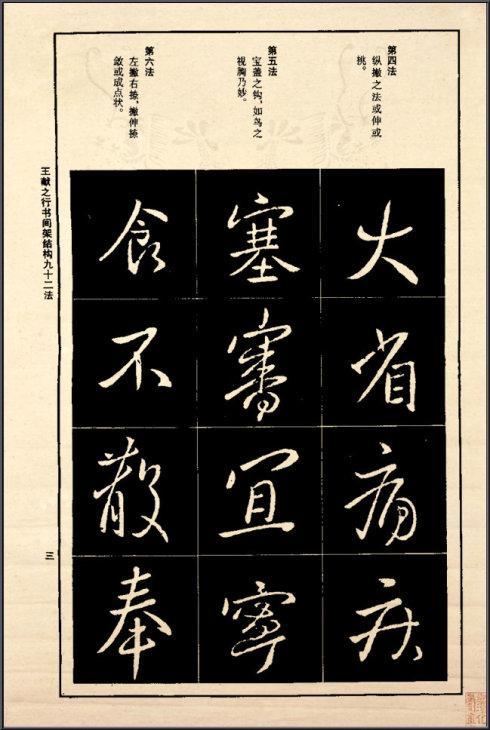 第四法
纵撇之法或伸或
挑。
第五法
宝盖之钩，如鸟之
视胸乃妙。
第六法
左撇右捺，撇伸捺
敛或成点状。
火省病疾
塞審宜寧
食不散奉
王献之行书间架结构九十二法
三